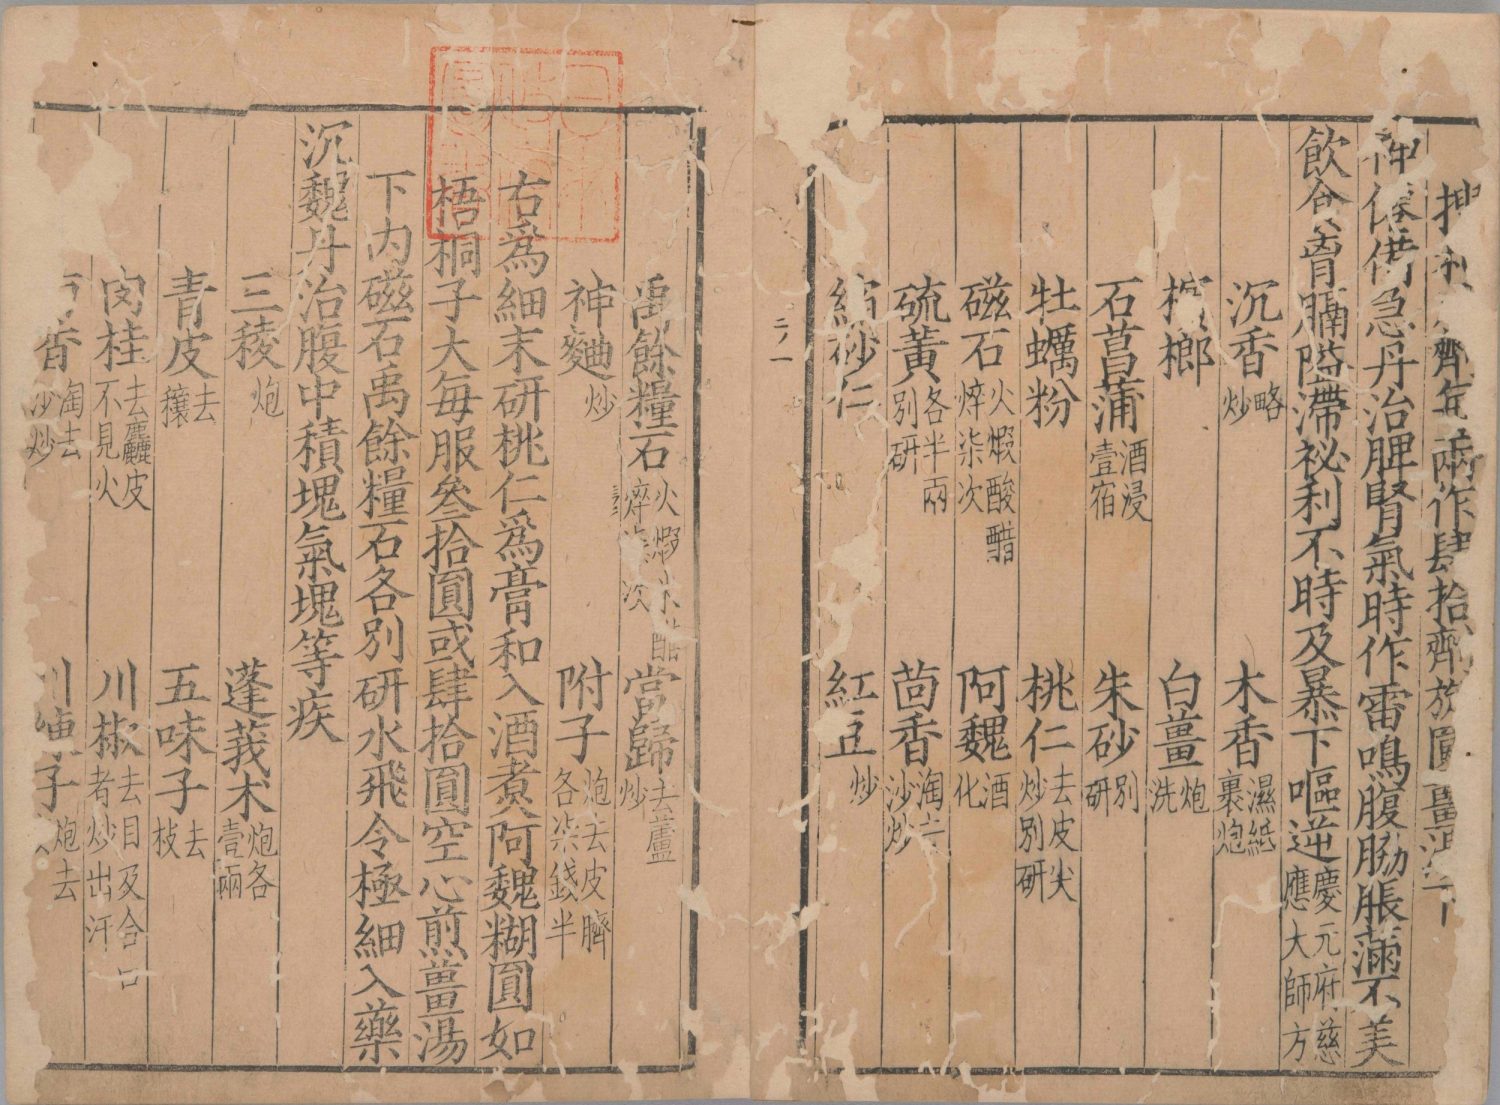 兩作肆拾齊
神保備急丹治脾腎氣時作雷鳴腹脇脹滿不美
飲食胷膈隘滯祕利不時及暴下嘔逆慶元府慈應大師方
沉香略炒 木香濕紙裹炮
檳榔 白薑炮洗
石菖蒲酒浸壹宿 朱砂別研
牡蠣粉 桃仁去皮尖炒別研
磁石火煅酸醋焠柒次 阿魏酒化
硫黃各半兩別研 茴香淘去沙炒
縮砂仁 紅豆炒
禹餘糧石火煅米醋焠柒次 當歸去蘆炒
神麴炒 附子炮去皮臍各柒錢半
右爲細末研桃仁爲膏和入酒煑阿魏糊圓如
梧桐子大每服叄拾圓或肆拾圓空心煎薑湯
下内磁石禹餘糧石各別研水飛令極細入藥
沉魏丹治腹中積塊氣塊等疾
三稜炮 蓬莪朮炮各壹兩
青皮去穰 五味子去枝
肉桂去麤皮不見火 川椒去目及合口者炒出汗
香淘去沙炒 川楝子炮去